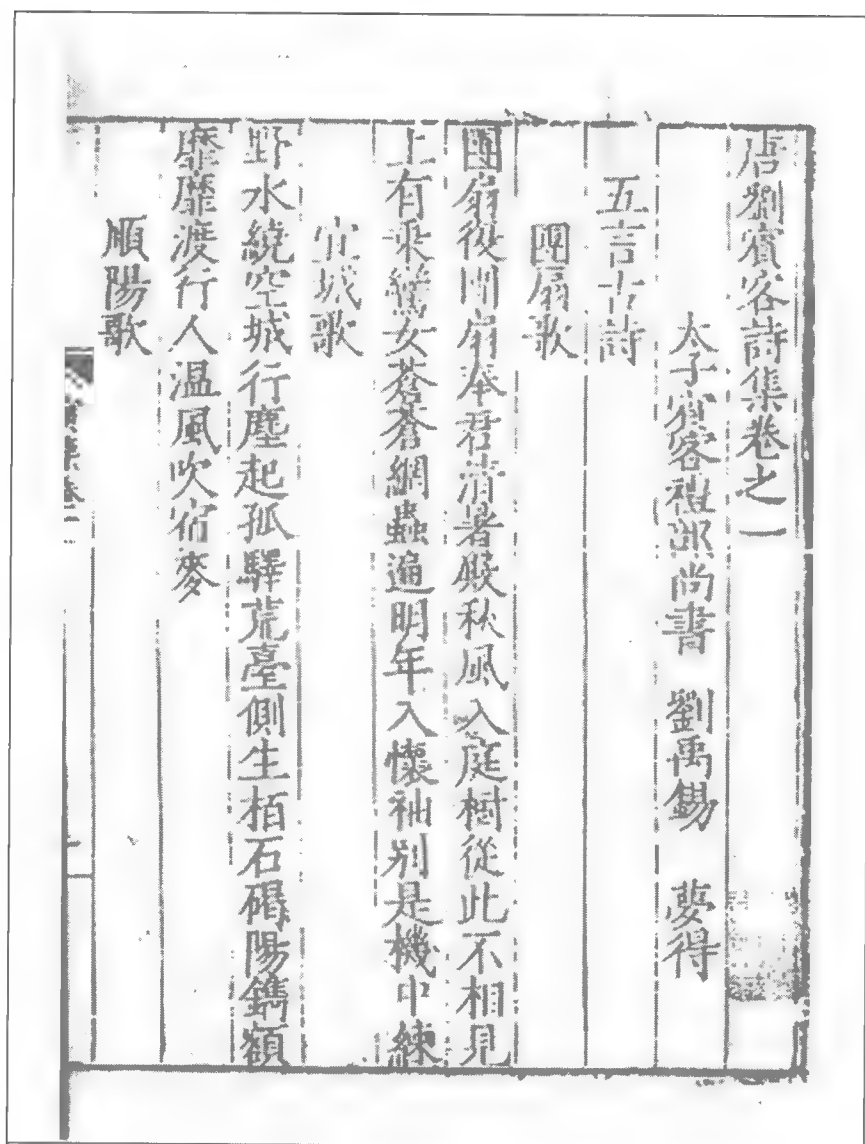 唐劉賓客詩集卷之一
太子賓客禮部尚書 劉禹錫 夢得
五言古詩
團扇歌
團扇復團扇奉君清暑殿秋風入庭樹從此不相見
上有乘鸞女蒼蒼網蟲遍明年入懷袖別是機中練
宜城歌
野水繞空城行塵起孤驛荒臺側生栢石碣陽鐫額
靡靡渡行人温風吹宿麥
順陽歌
集卷